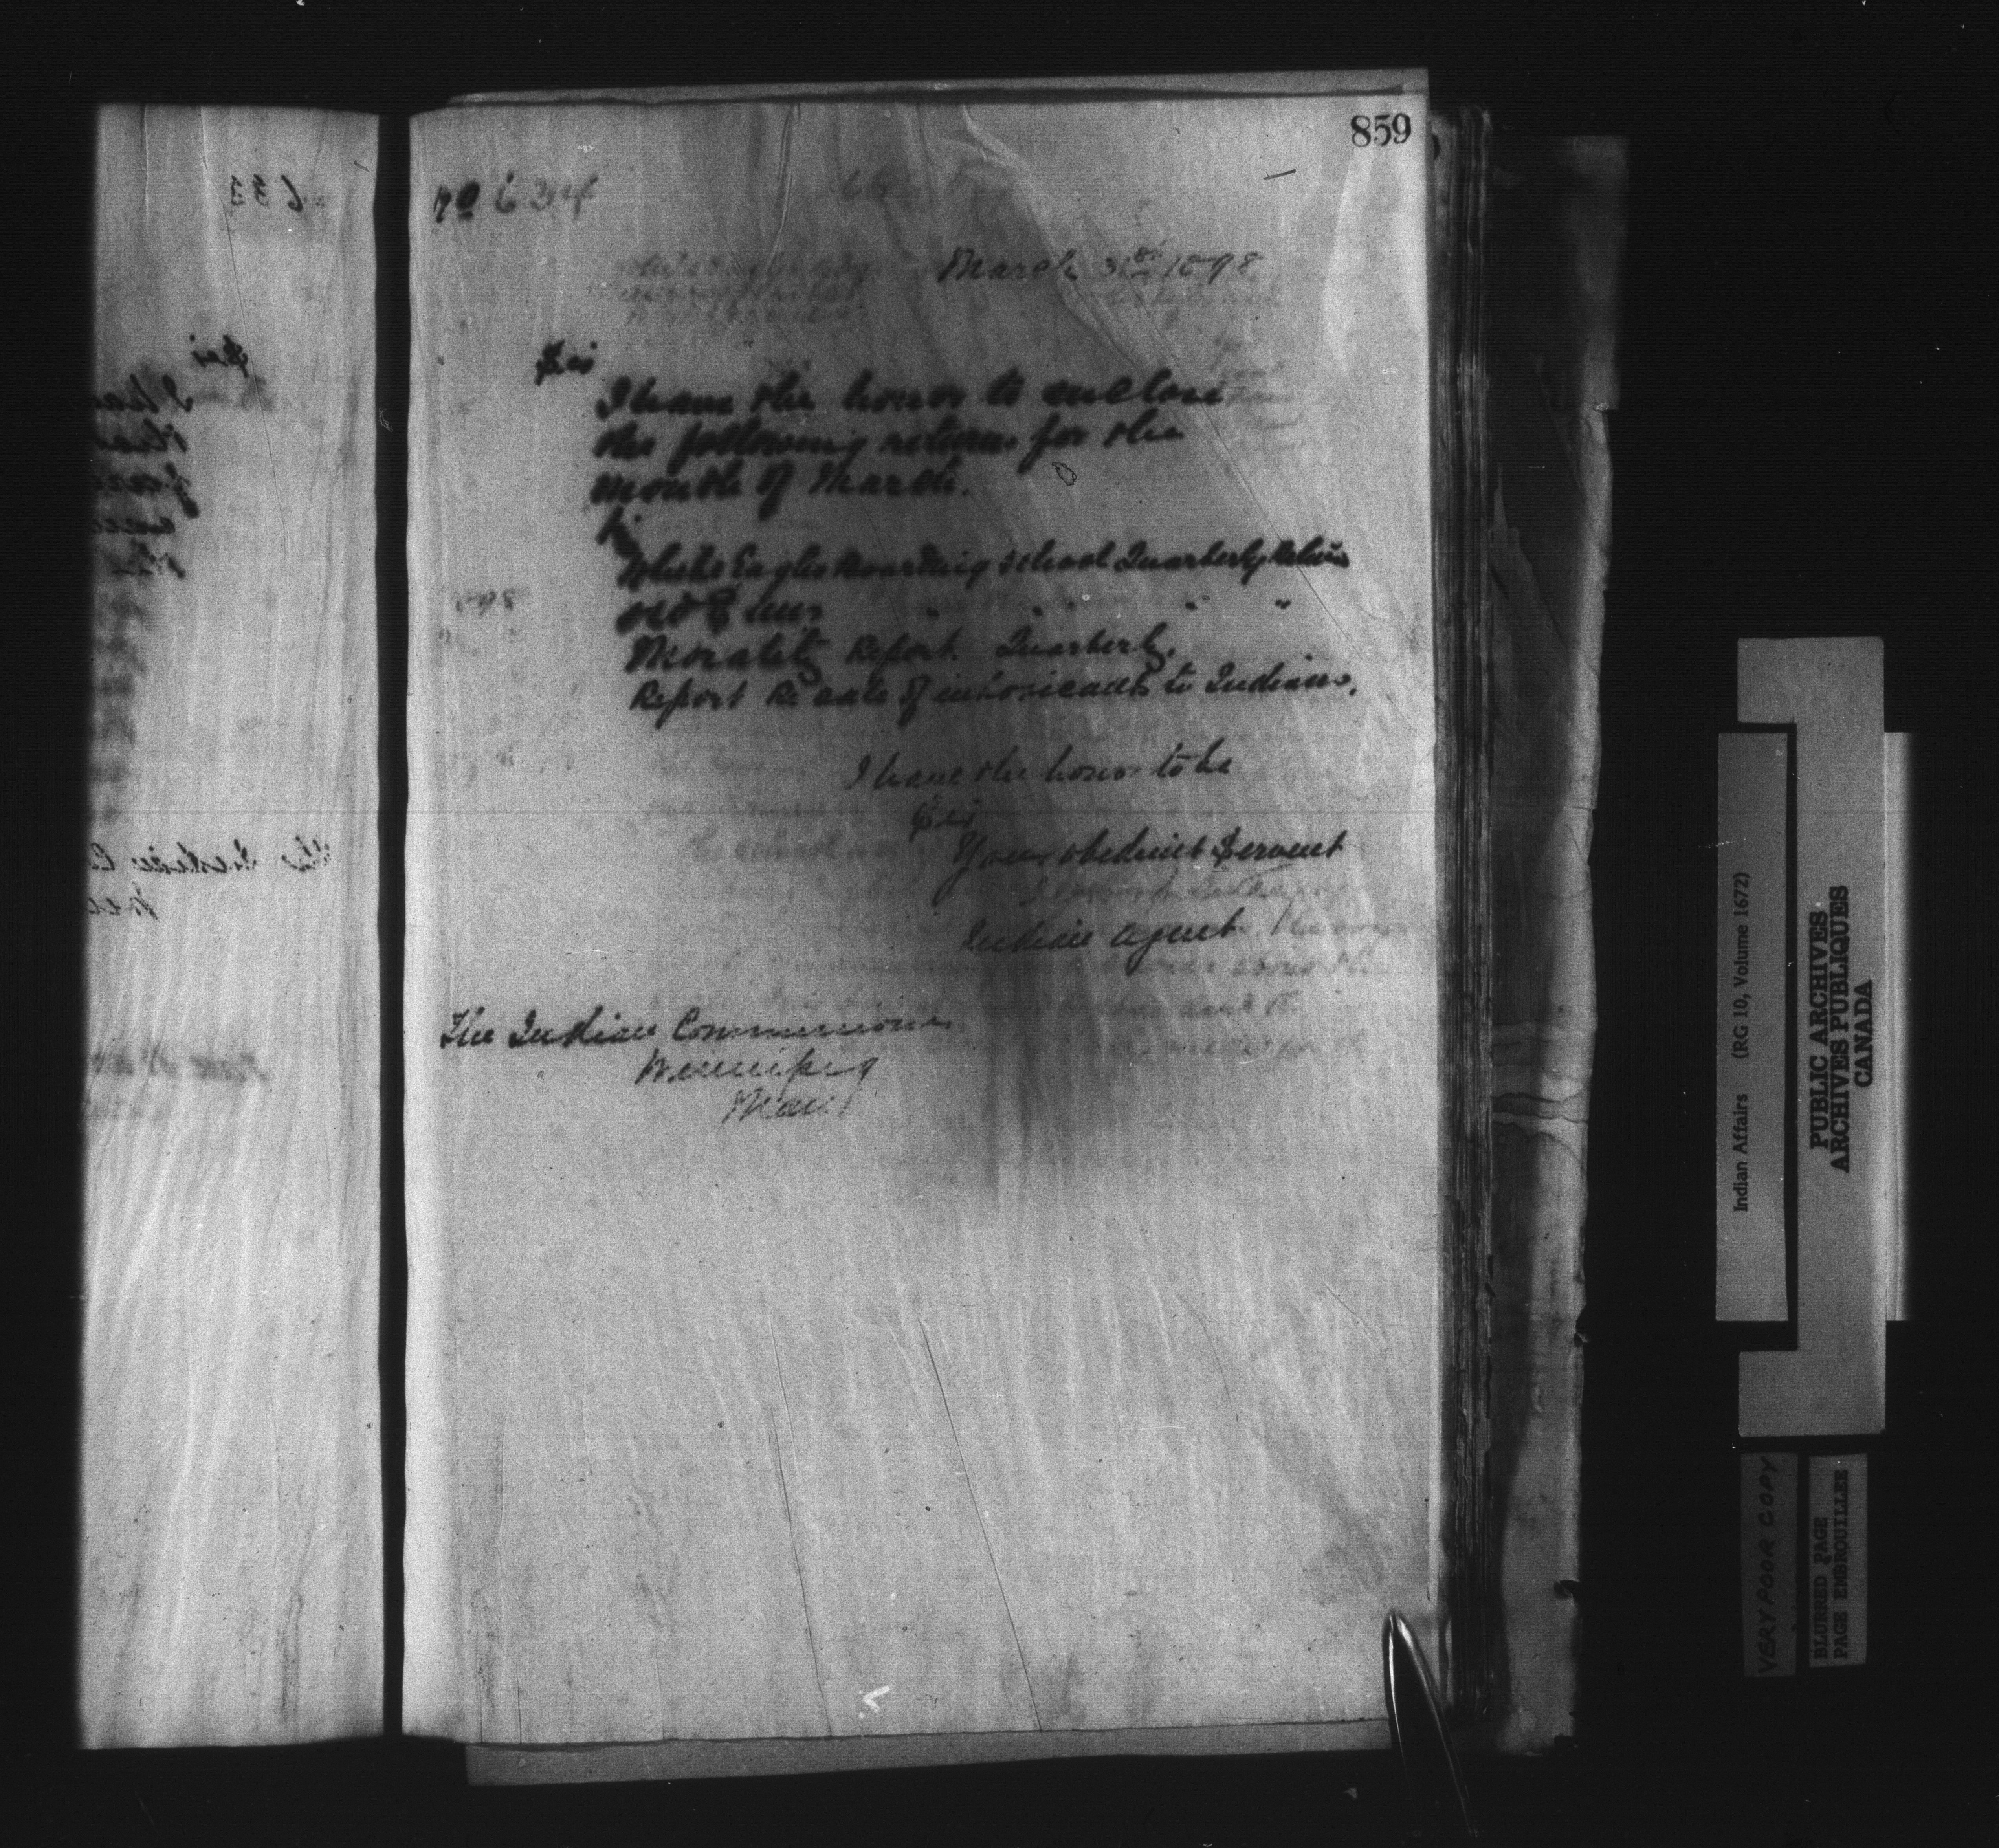 859
March 31st 1898
Sir
I have the honor to enclose
the following returns for the
Month of March.
White Eagles Boarding School Quarterly Return
Old Suns " " " "
Morality Report. Quarterly.
Report Re sale of intoxicants to Indians.
I have the honor to be
Sir
Your obedient Servant
Indian Agent
The Indian Commissioner
Winnipeg
Man
Indian Affairs (RG 10, Volume 1672)
PUBLIC ARCHIVES
ARCHIVES PUBLIQUES
CANADA
VERY POOR COPY
BLURRED PAGE
PAGE EMBROUILLEE